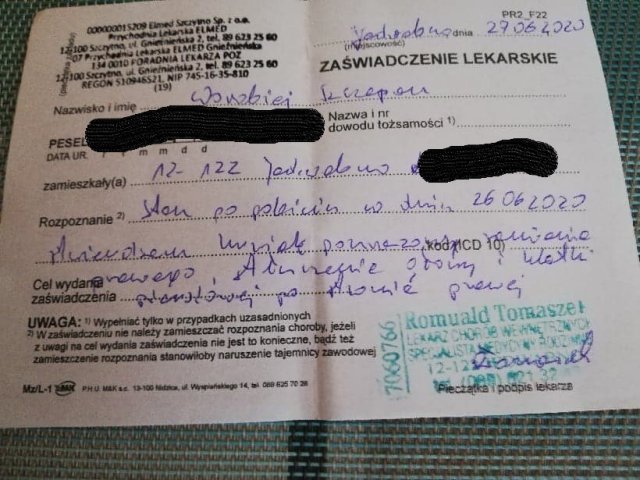 PR2_F22
000000015209 Elmed Szczytno Sp. z o.o.
Przychodnia Lekarska ELMED
12-100 Szczytno, ul. Gnieźnieńska 2, tel. 89 623 25 60
07 Przychodnia Lekarska ELMED Gnieźnieńska
134 0010 PORADNIA LEKARZA POZ
12-100 Szczytno, ul. Gnieźnieńska 2, tel. 89 623 25 60
REGON 510946521, NIP 745-16-35-810
(19)
Jedwabno dnia 29.06.2020
(miejscowość)
ZAŚWIADCZENIE LEKARSKIE
Nazwisko i imię Worobiej Szczepan
PESEL
Nazwa i nr
dowodu tożsamości 1)
DATA UR. m m d d
zamieszkały(a) 12-122 Jedwabno
Rozpoznanie 2) Stan po pobiciu w dniu 26.06.2020
kod(ICD 10) ramienia
Cel wydania prawego, stłuczenie głowy i klatki
zaświadczenia piersiowej po stronie prawej
UWAGA: 1) Wypełniać tylko w przypadkach uzasadnionych
2) W zaświadczeniu nie należy zamieszczać rozpoznania choroby, jeżeli
z uwagi na cel wydania zaświadczenia nie jest to konieczne, bądź też
zamieszczenie rozpoznania stanowiłoby naruszenie tajemnicy zawodowej
7060766
Romuald Tomaszek
LEKARZ CHORÓB WEWNĘTRZNYCH
SPECJALISTA
Pieczątka i podpis lekarza
Mz/L-1 M&K P.H.U. M&K s.c. 13-100 Nidzica, ul. Wyspiańskiego 14, tel 089 625 70 28